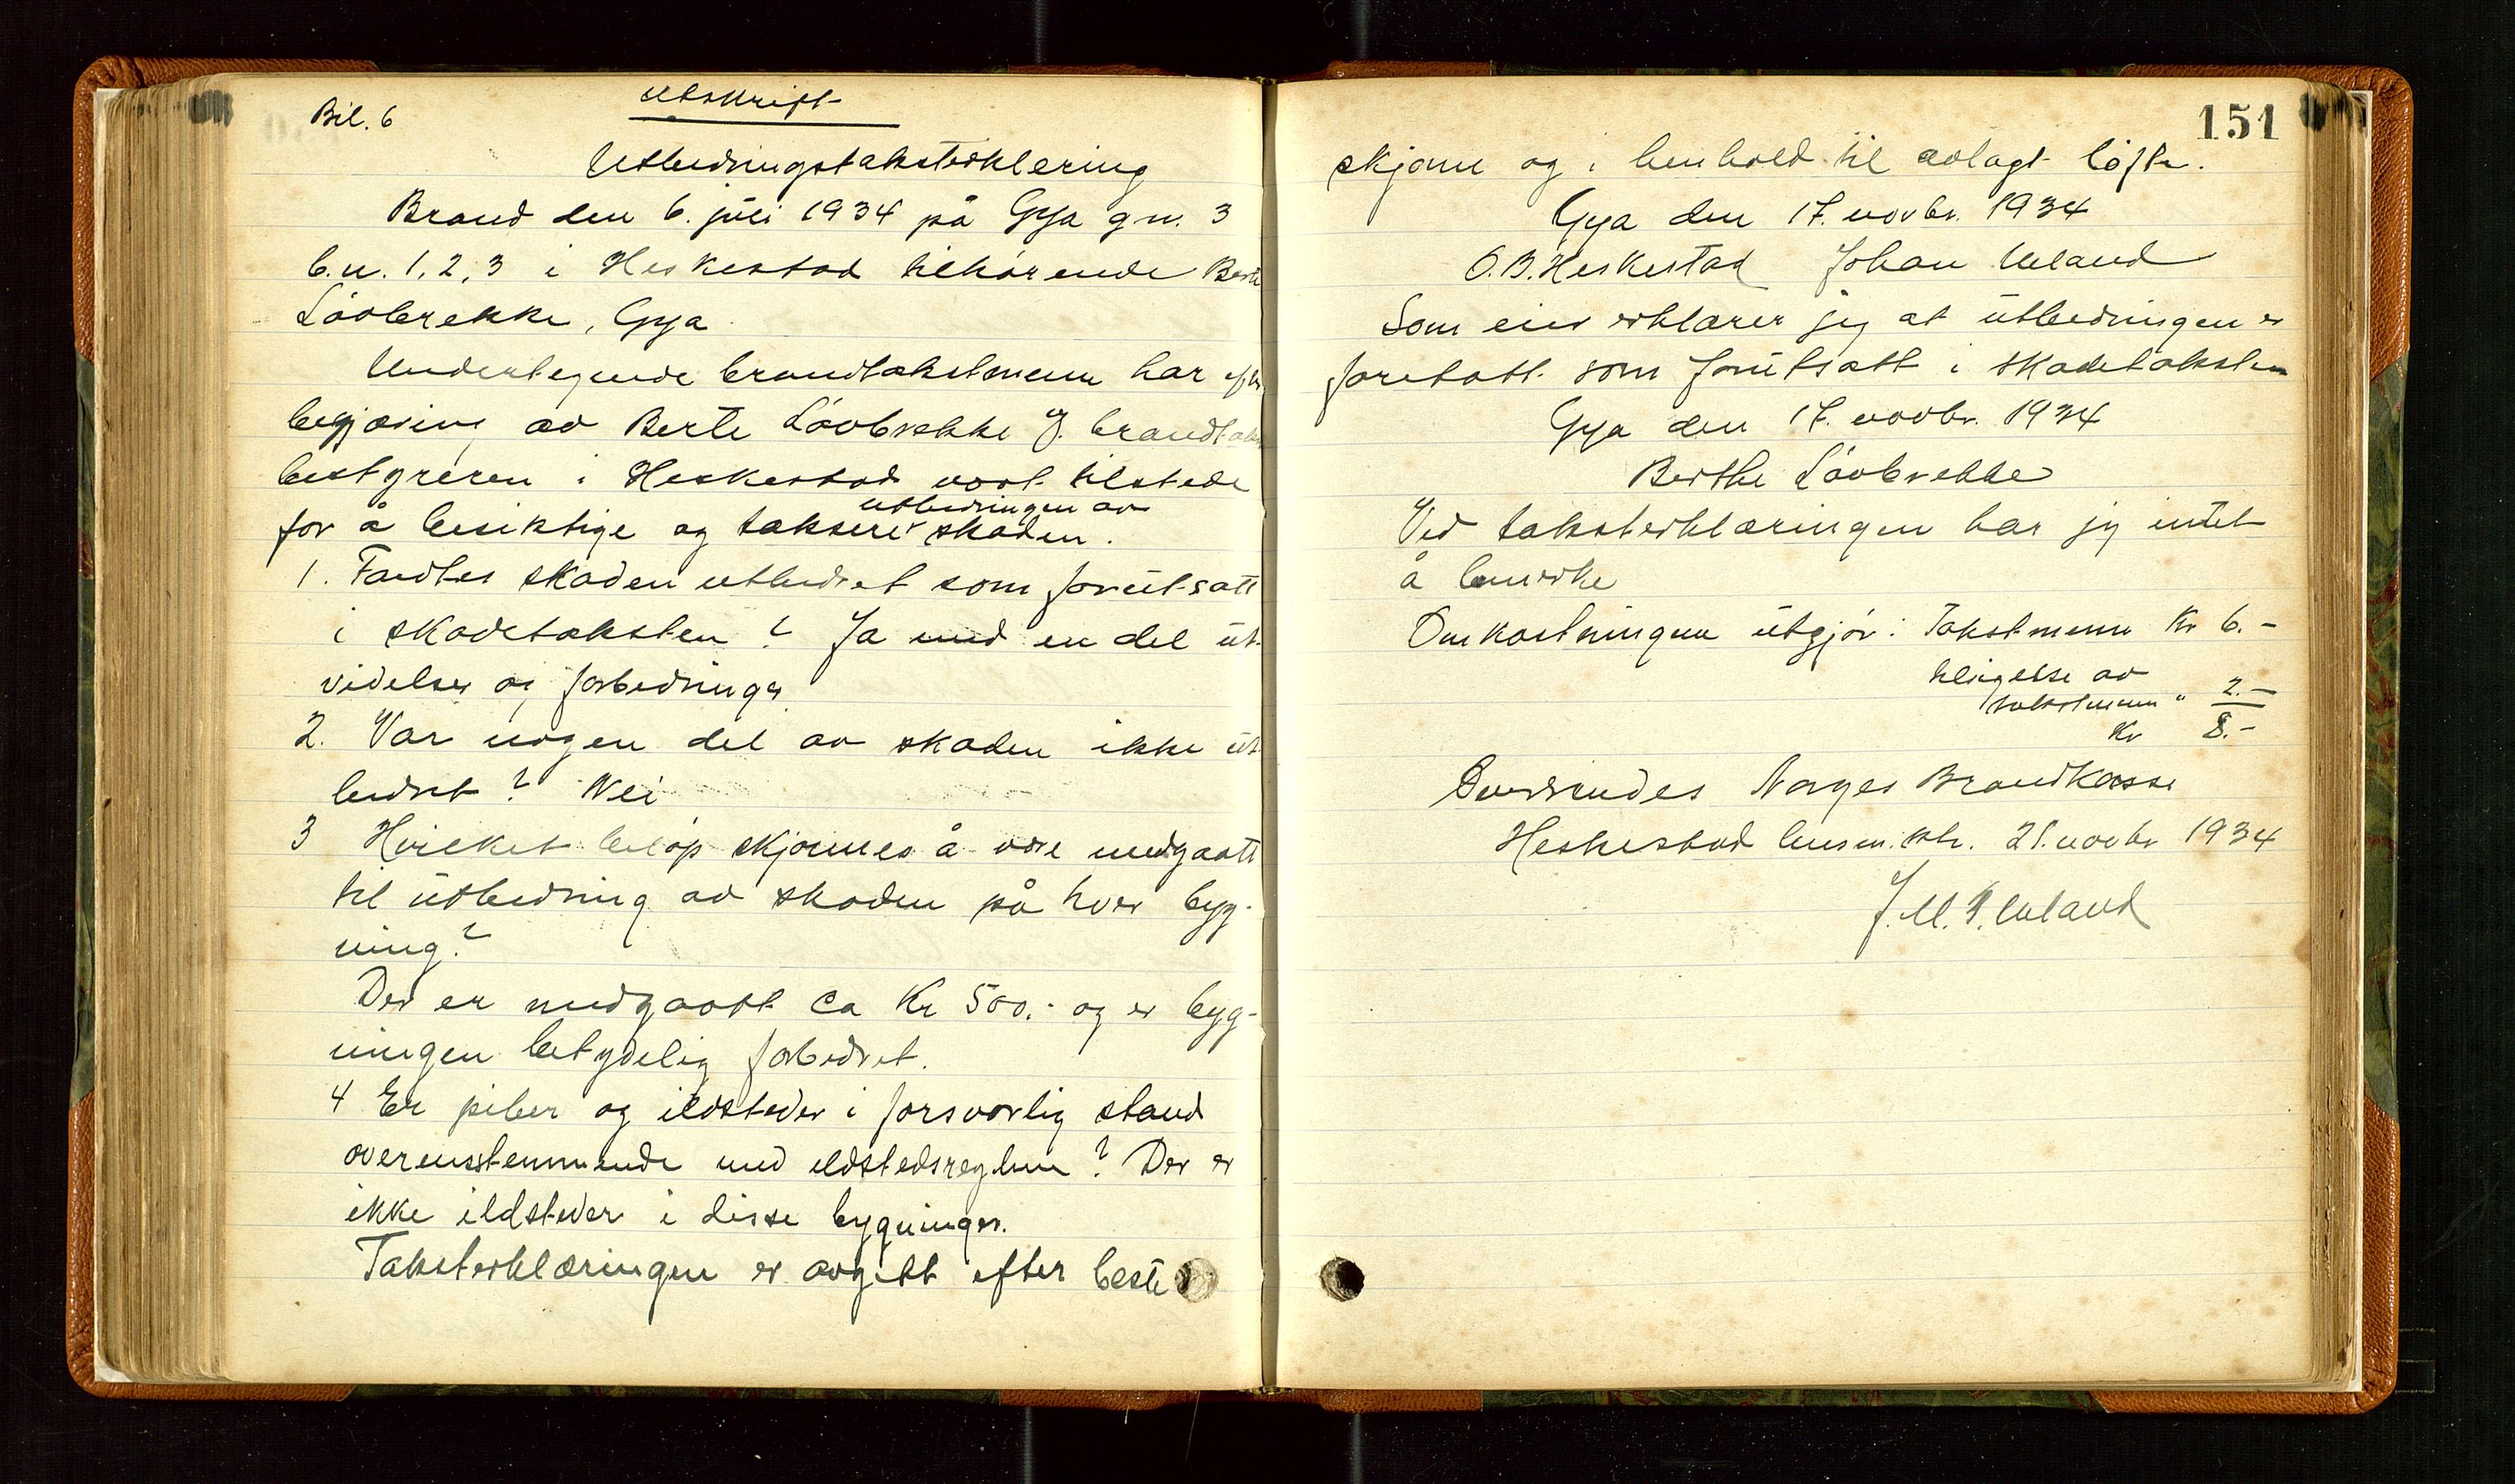 Bil. 6
Utskrift
Utbedringstaksterklæring
Brand den 6. juli 1934 på Gya g.n. 3
b.n. 1, 2, 3 i Heskestad tilhørende Berte
Løvbrekke, Gya
Undertegnede brandtakstmenn har efter
begjæring av Berte Løvbrekke J. brandtakst
bestyreren i Heskestad vært tilstede
utbedringen av
for å besiktige og taksere skaden.
1. Fandtes skaden utbedret som forutsatt
i skadetaksten? Ja med en del ut-
videlser og forbedringer
2. Var nogen del av skaden ikke ut
bedret? Nei
3 Hvilket beløp skjønnes å være medgaatt
til utbedring av skaden på hver byg-
ning?
Der er medgaatt ca Kr 500.- og er byg-
ningen betydelig forbedret.
4 Er piber og ildsteder i forsvarlig stand
overensstemmende med ildstedsreglene? Der er
ikke ildsteder i disse bygninger.
Taksterklæringen er avgitt efter beste
151
skjønn og i henhold til avlagt løfte.
Gya den 17. novbr. 1934
O.B. Heskestad Johan Ueland
Som eier erklærer jeg at utbedringen er
foretatt som forutsatt i skadetaksten
Gya den 17. novbr. 1934
Berthe Løvbrekke
Ved taksterklæringen har jeg intet
å bemerke
Omkostningene utgjør: Takstmenn Kr 6.-
tilsigelse av
takstmenn " 2.-
Kr 8.-
Oversendes Norges Brandkasse
Heskestad lensm.ktr. 21. novbr 1934
J. M. Ueland